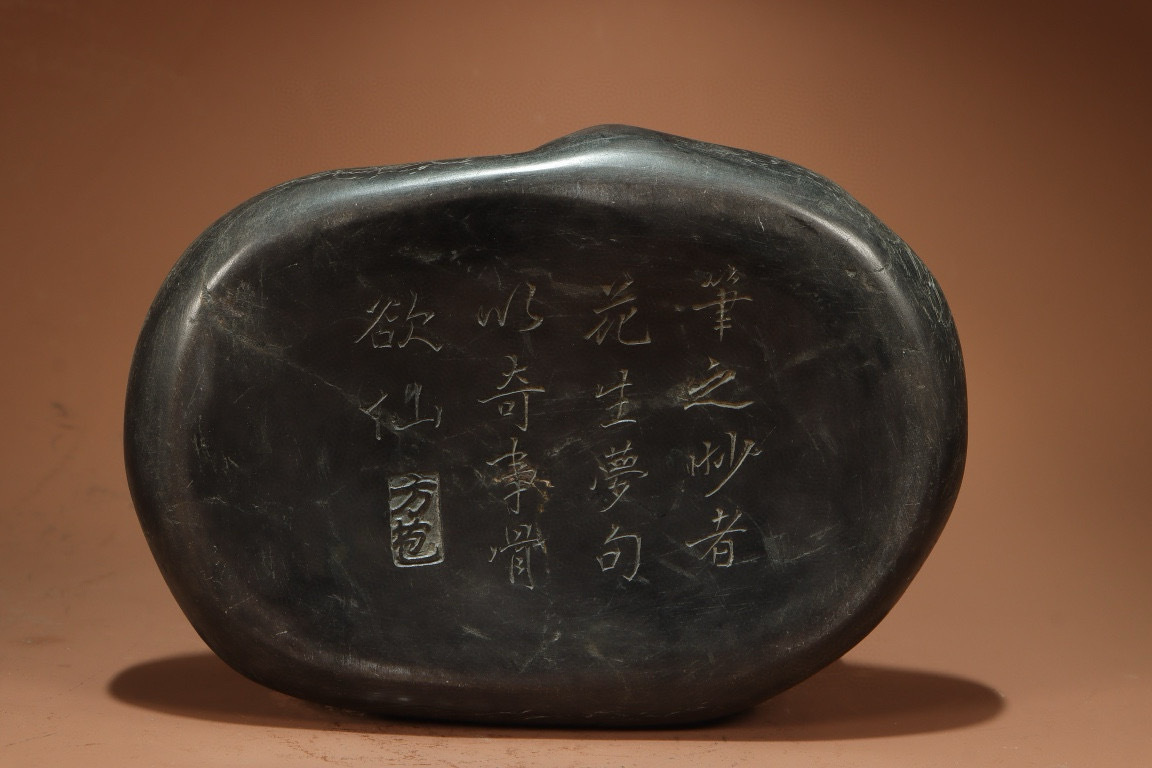 筆之妙者
花生夢句
以奇事骨
欲仙
方苞